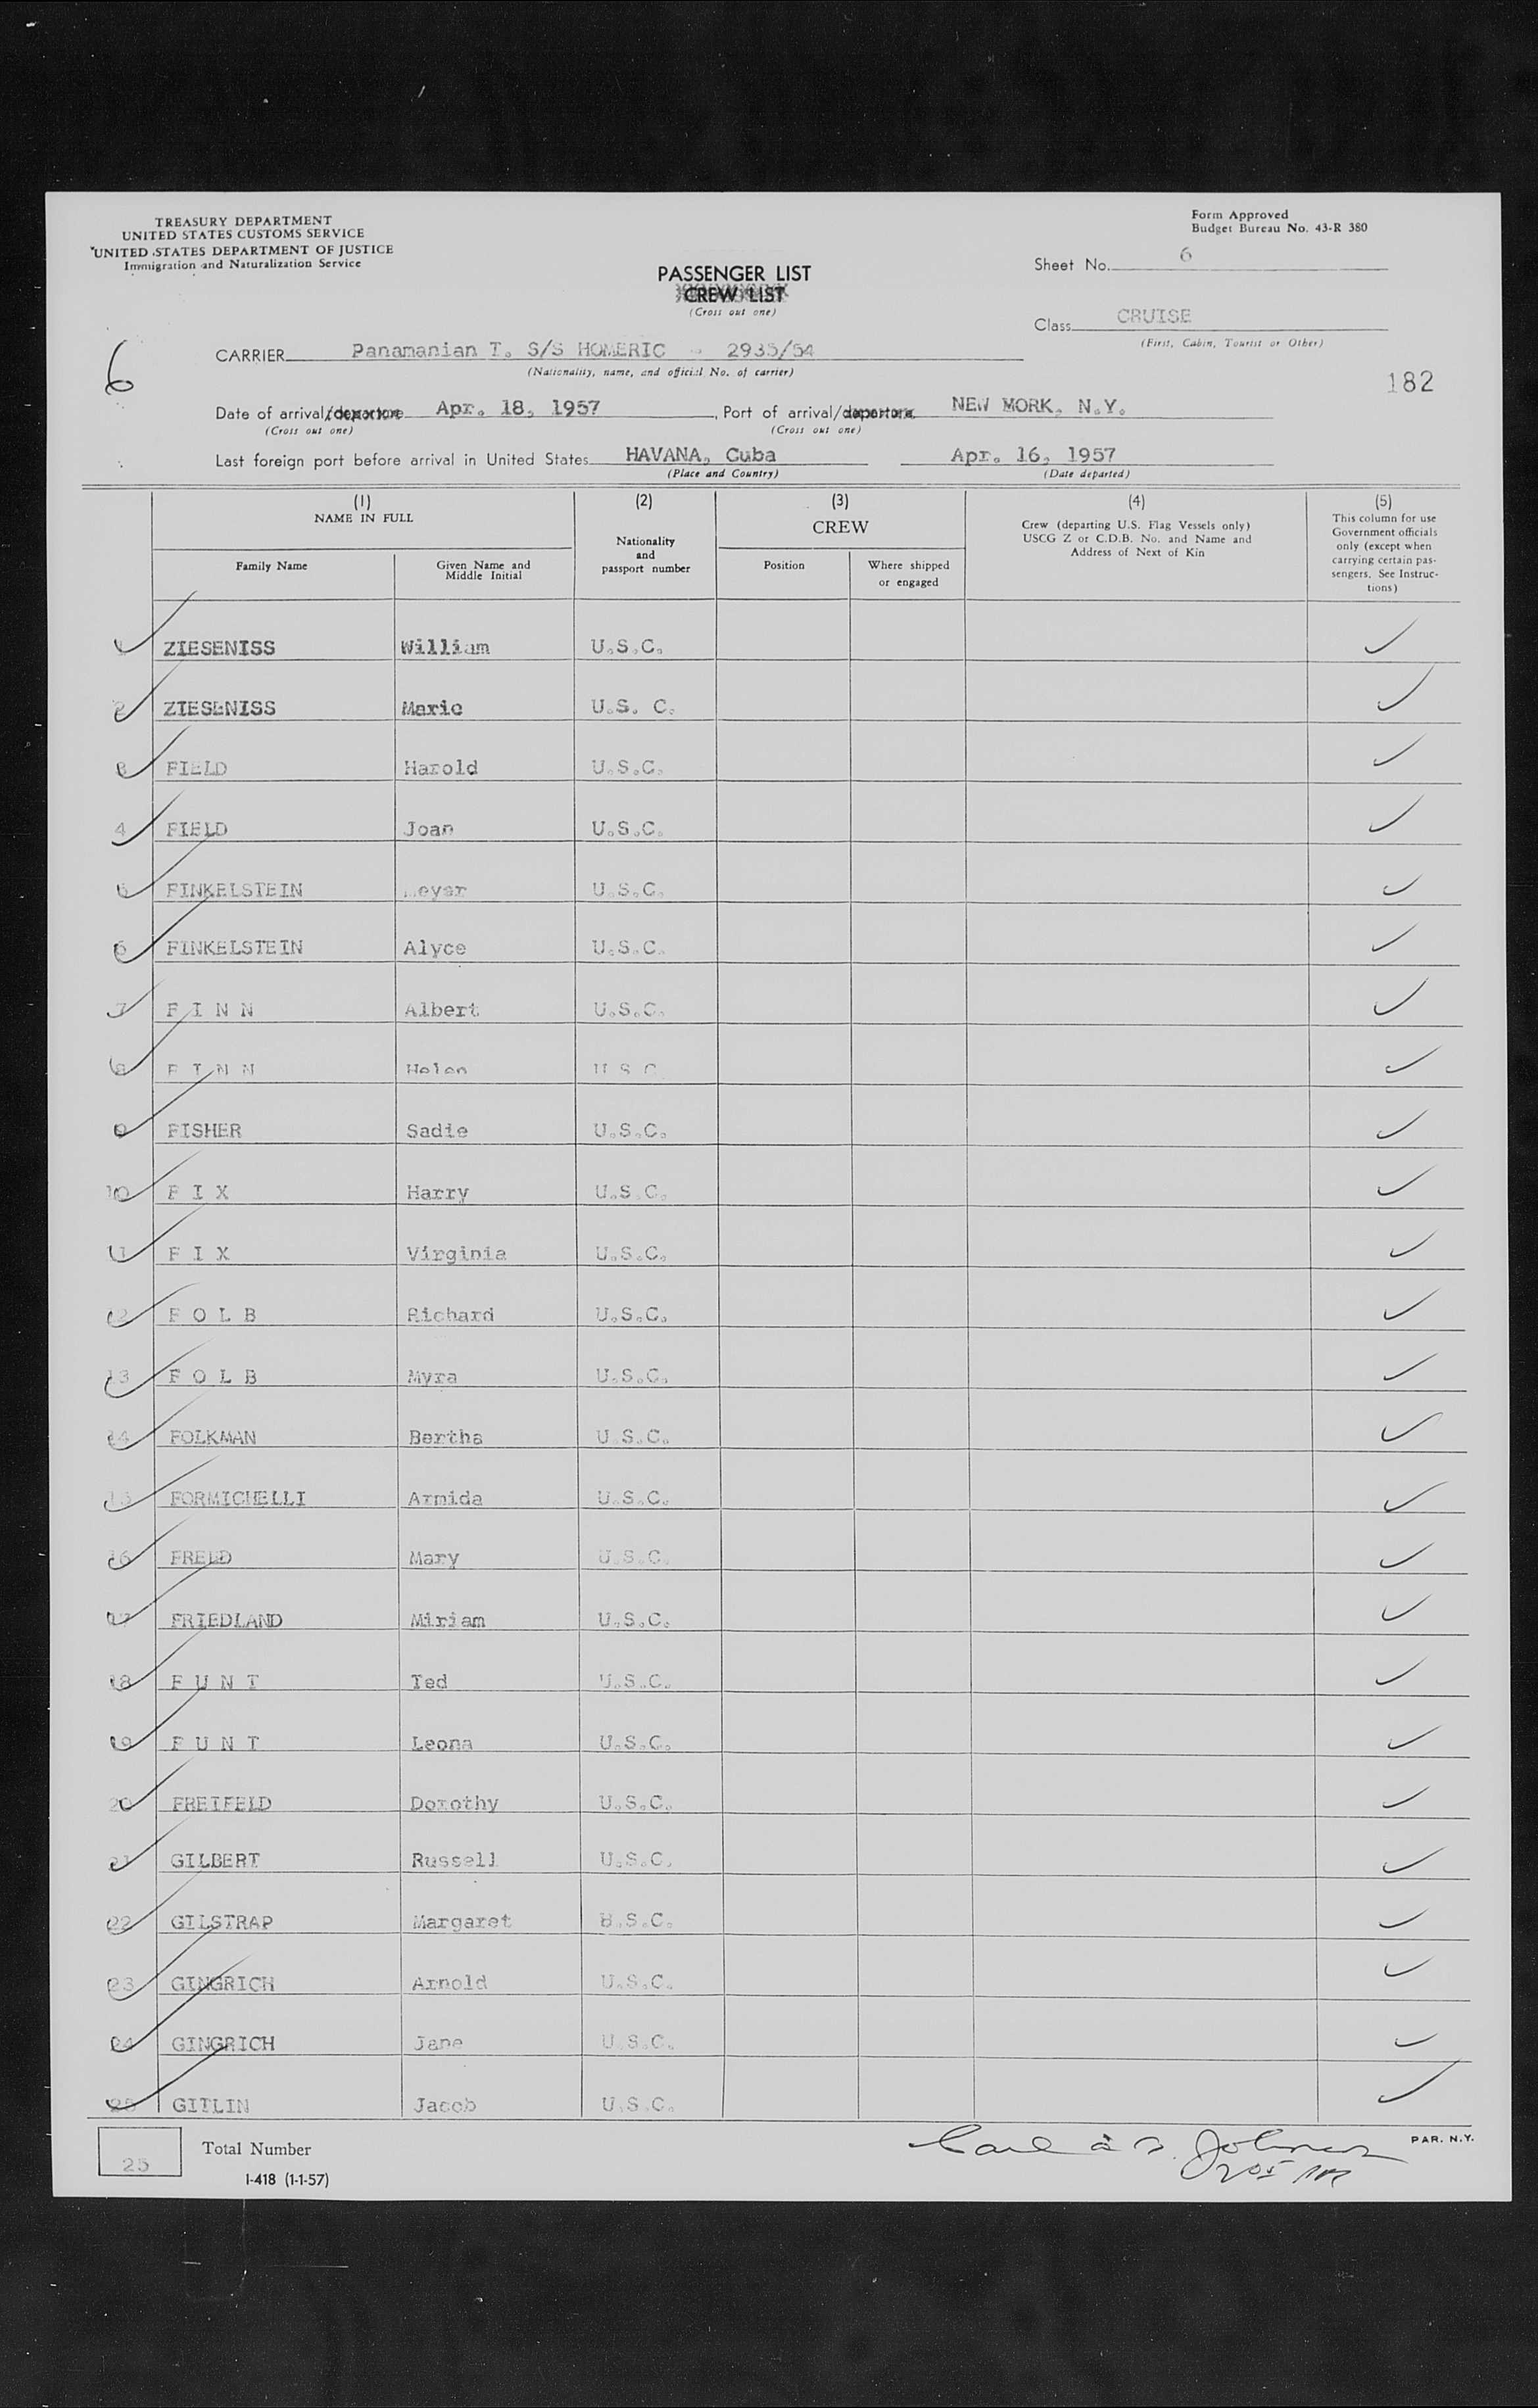 TREASURY DEPARTMENT
UNITED STATES CUSTOMS SERVICE
UNITED STATES DEPARTMENT OF JUSTICE
Immigration and Naturalization Service
Form Approved
Budget Bureau No. 43-R 380
Sheet No. 6
PASSENGER LIST
CREW LIST
(Cross out one)
Class CRUISE
(First, Cabin, Tourist or Other)
6
CARRIER Panamanian T. S/S HOMERIC - 2935/54
(Nationality, name, and official No. of carrier)
182
Date of arrival/departure Apr. 18, 1957, Port of arrival/departure NEW MORK, N.Y.
(Cross out one) (Cross out one)
Last foreign port before arrival in United States HAVANA, Cuba Apr. 16, 1957
(Place and Country) (Date departed)
(1) NAME IN FULL
Family Name
Given Name and Middle Initial
(2) Nationality and passport number
(3) CREW
Position
Where shipped or engaged
(4) Crew (departing U.S. Flag Vessels only) USCG Z or C.D.B. No. and Name and Address of Next of Kin
(5) This column for use Government officials only (except when carrying certain passengers. See Instructions)
1 ZIESENISS William U.S.C.
2 ZIESENISS Marie U.S. C.
3 FIELD Harold U.S.C.
4 FIELD Joan U.S.C.
5 FINKELSTEIN Meyer U.S.C.
6 FINKELSTEIN Alyce U.S.C.
7 F I N N Albert U.S.C.
8 F I N N Helen U S C
9 FISHER Sadie U.S.C.
10 F I X Harry U.S.C.
11 F I X Virginia U.S.C.
12 F O L B Richard U.S.C.
13 F O L B Myra U.S.C.
14 FOLKMAN Bertha U.S.C.
15 FORMICHELLI Armida U.S.C.
16 FRELD Mary U.S.C.
17 FRIEDLAND Miriam U.S.C.
18 F U N T Ted U.S.C.
19 F U N T Leona U.S.C.
20 FREIFELD Dorothy U.S.C.
21 GILBERT Russell U.S.C.
22 GILSTRAP Margaret U.S.C.
23 GINGRICH Arnold U.S.C.
24 GINGRICH Jane U.S.C.
25 GITLIN Jacob U.S.C.
25 Total Number
I-418 (1-1-57)
PAR. N.Y.